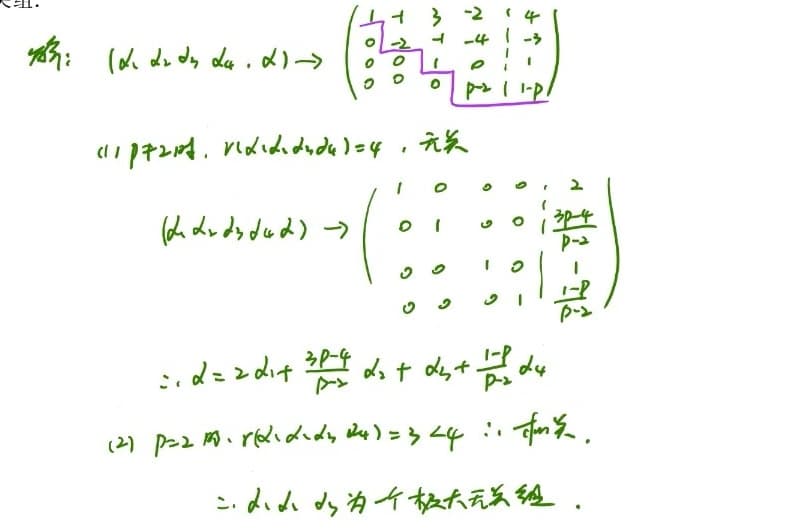 关组.
解: (α₁ α₂ α₃ α₄ , α) → ( 1 -1 3 -2 | 4
0 -2 -1 -4 | -3
0 0 1 0 | 1
0 0 0 p-2 | 1-p )
(1) p≠2时. r(α₁α₂α₃α₄)=4 , 无关
(α₁ α₂ α₃ α₄ α) → ( 1 0 0 0 | 2
0 1 0 0 | (3p-4)/(p-2)
0 0 1 0 | 1
0 0 0 1 | (1-p)/(p-2) )
∴ α = 2α₁ + (3p-4)/(p-2) α₂ + α₃ + (1-p)/(p-2) α₄
(2) p=2时. r(α₁α₂α₃α₄)=3<4 ∴ 相关.
∴ α₁ α₂ α₃ 为一个极大无关组.